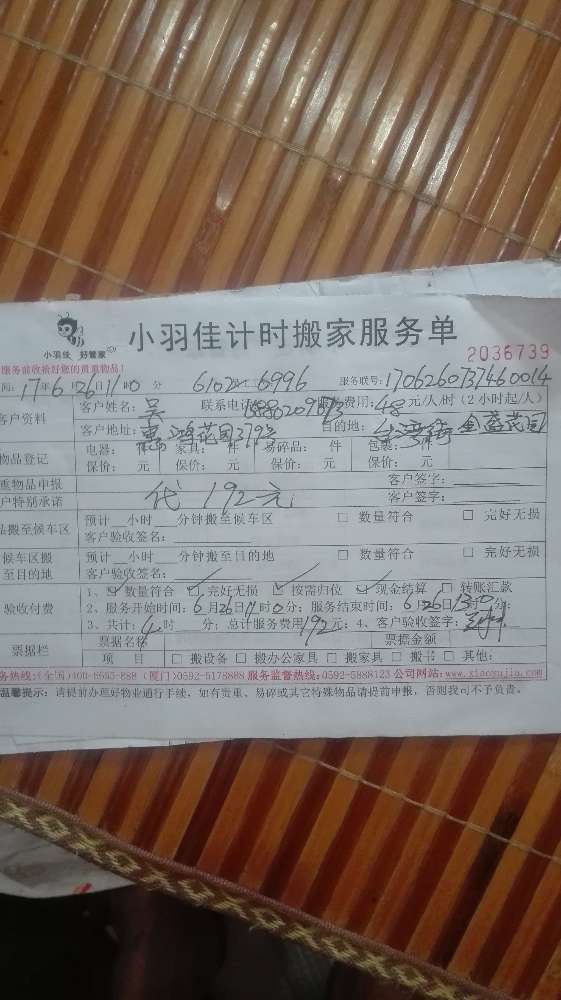 小羽佳 好管家
小羽佳计时搬家服务单
2036739
服务前收拾好您的贵重物品!
间: 17年6月26日11时00分 6102 工 6996 服务联号: 1706260737460014
客户资料 客户姓名: 吴 联系电话 费用: 48元/人/时(2小时起/人)
客户地址: 惠鸿花园 目的地: 台湾街 金莲花园
物品登记 电器: 件 家具: 件 易碎品: 件 包装: 件
保价: 元 保价: 元 保价: 元 保价: 元
重物品申报 客户签字:
户特别承诺 代 192元 客户签字:
品搬至候车区 预计__小时__分钟搬至候车区 □ 数量符合 □ 完好无损
客户验收签名:
候车区搬至目的地 预计__小时__分钟搬至目的地 □ 数量符合 □ 完好无损
客户签名:
验收付费 1、☑ 数量符合 ☑ 完好无损 ☑ 按需归位 ☑ 现金结算 □ 转账汇款
2、服务开始时间: 6月26日11时0分; 服务结束时间: 6月26日13 分;
3、共计: 4时 分; 总计服务费用192元; 4、客户验收签字:
票据栏 票据名称 票据金额
项 目 □ 搬设备 □ 搬办公家具 □ 搬家具 □ 搬书 □ 其他:
务热线:(全国)400-6565-888 (厦门)0592-5178888 服务监督热线: 0592-5888123 公司网站: www.xiaoyujia.com
温馨提示: 请提前办理好物业通行手续, 如有贵重、易碎或其它特殊物品请提前申报, 否则我司不予负责。